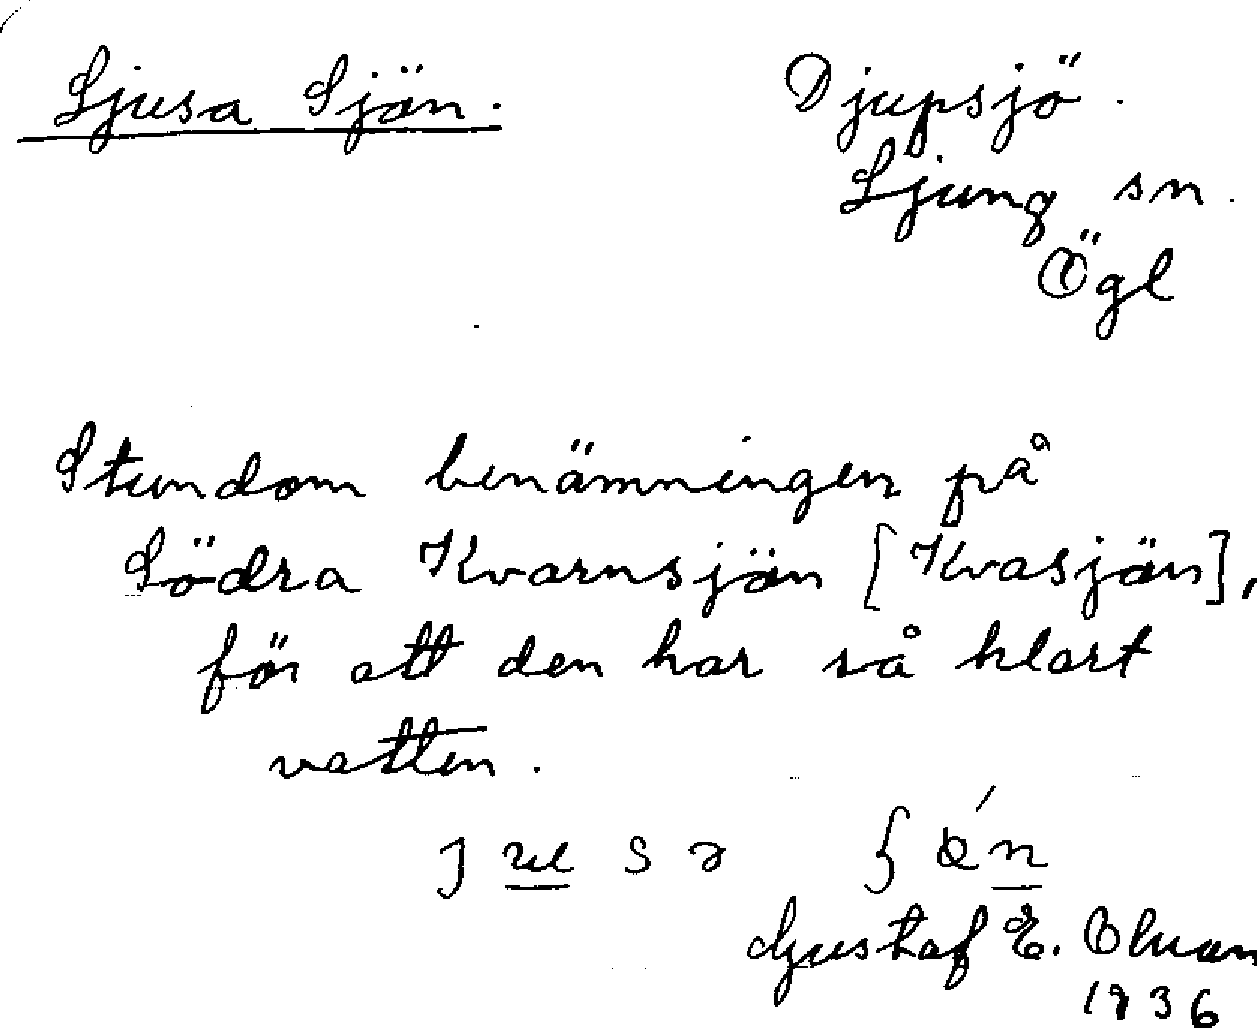 Ljusa Sjön.
Djupsjö.
Ljung sn.
Ögl
Stundom benämningen på
Södra Kvarnsjön [Kvasjön],
för att den har så klart
vatten.
Gustaf E.
1936